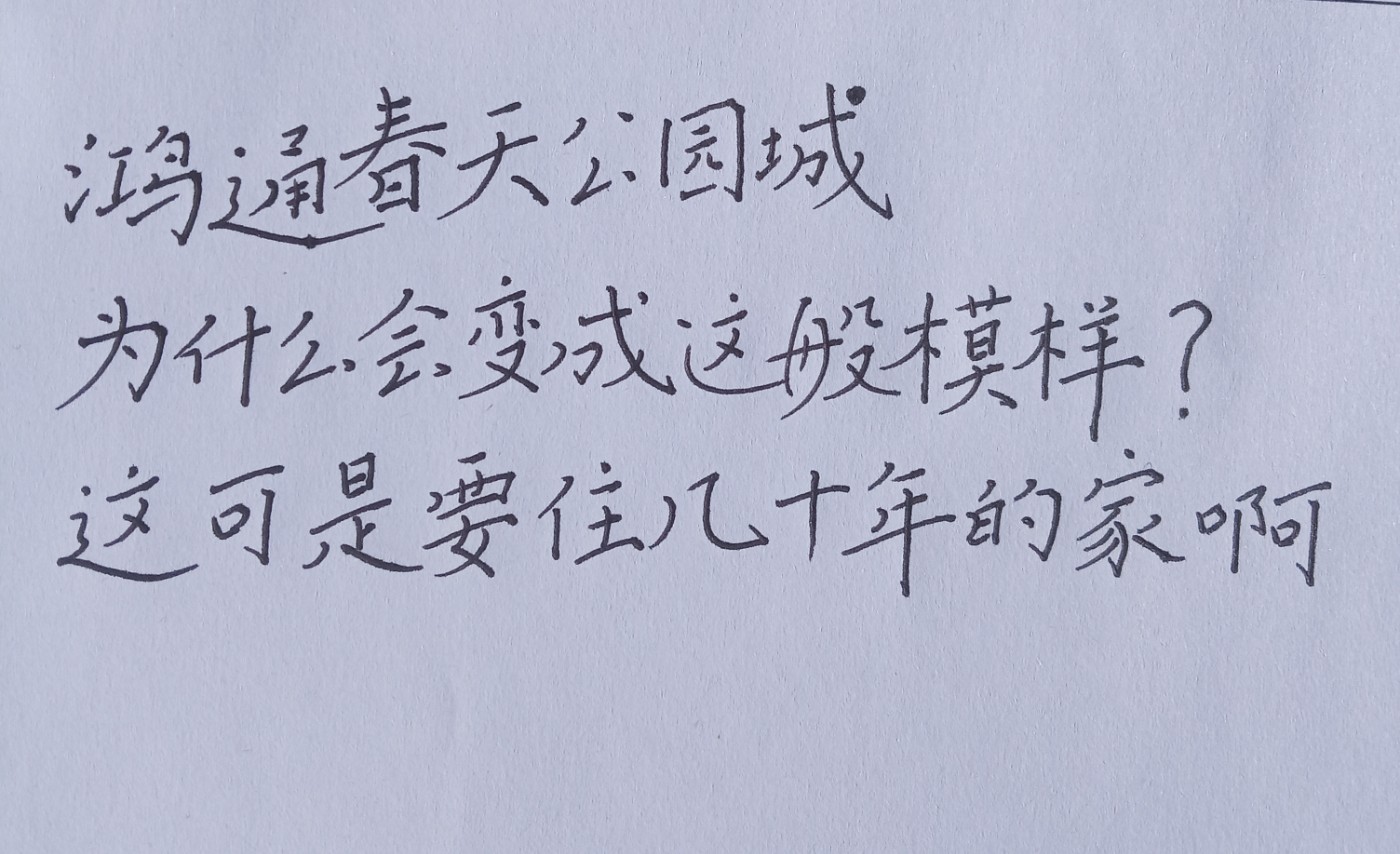 鸿通春天公园城
为什么会变成这般模样?
这可是要住几十年的家啊